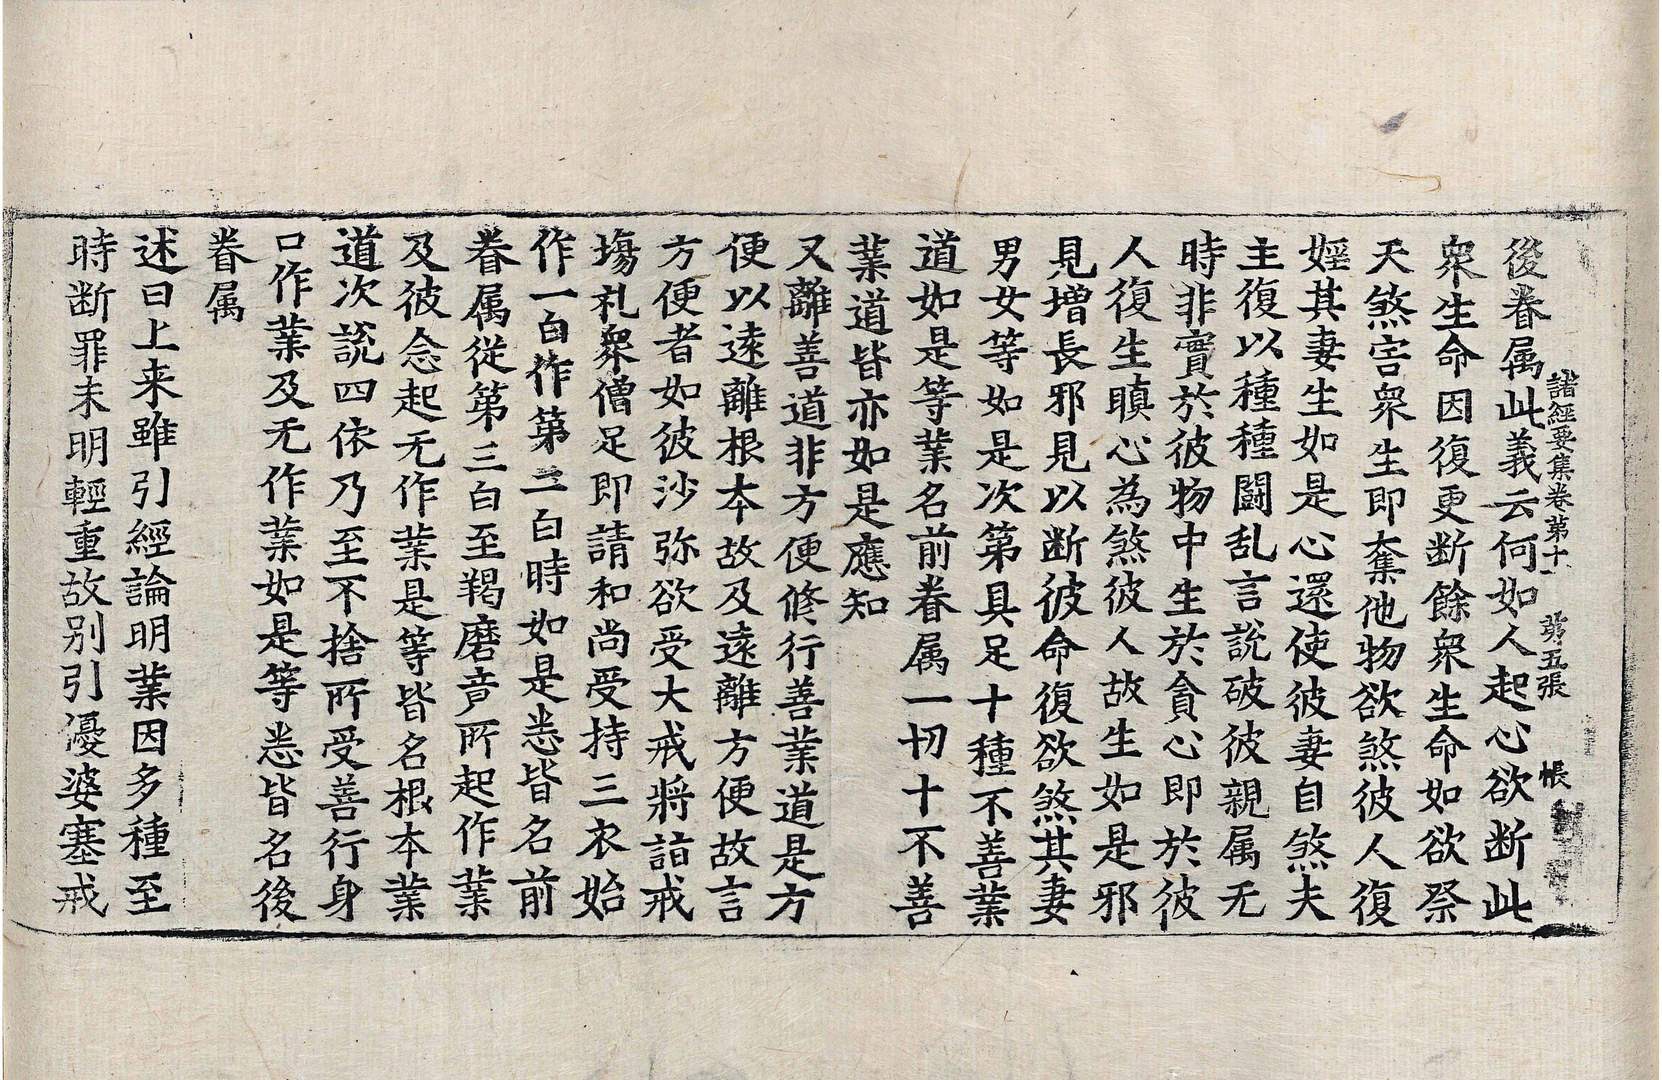 諸經要集卷第十一 第五張 帳
後眷属此義云何如人起心欲断此
衆生命因復更断餘衆生命如欲祭
天煞害衆生即奪他物欲煞彼人復
婬其妻生如是心還使彼妻自煞夫
主復以種種闘乱言說破彼親属无
時非實於彼物中生於貪心即於彼
人復生瞋心為煞彼人故生如是邪
見增長邪見以断彼命復欲煞其妻
男女等如是次第具足十種不善業
道如是等業名前眷属一切十不善
業道皆亦如是應知
又離善道非方便修行善業道是方
便以遠離根本故及遠離方便故言
方便者如彼沙弥欲受大戒將詣戒
塲礼衆僧足即請和尚受持三衣始
作一白作第二白時如是悉皆名前
眷属從第三白至羯磨竟所起作業
及彼念起无作業是等皆名根本業
道次說四依乃至不捨所受善行身
口作業及无作業如是等悉皆名後
眷属
述曰上来雖引經論明業因多種至
時断罪未明輕重故别引優婆塞戒